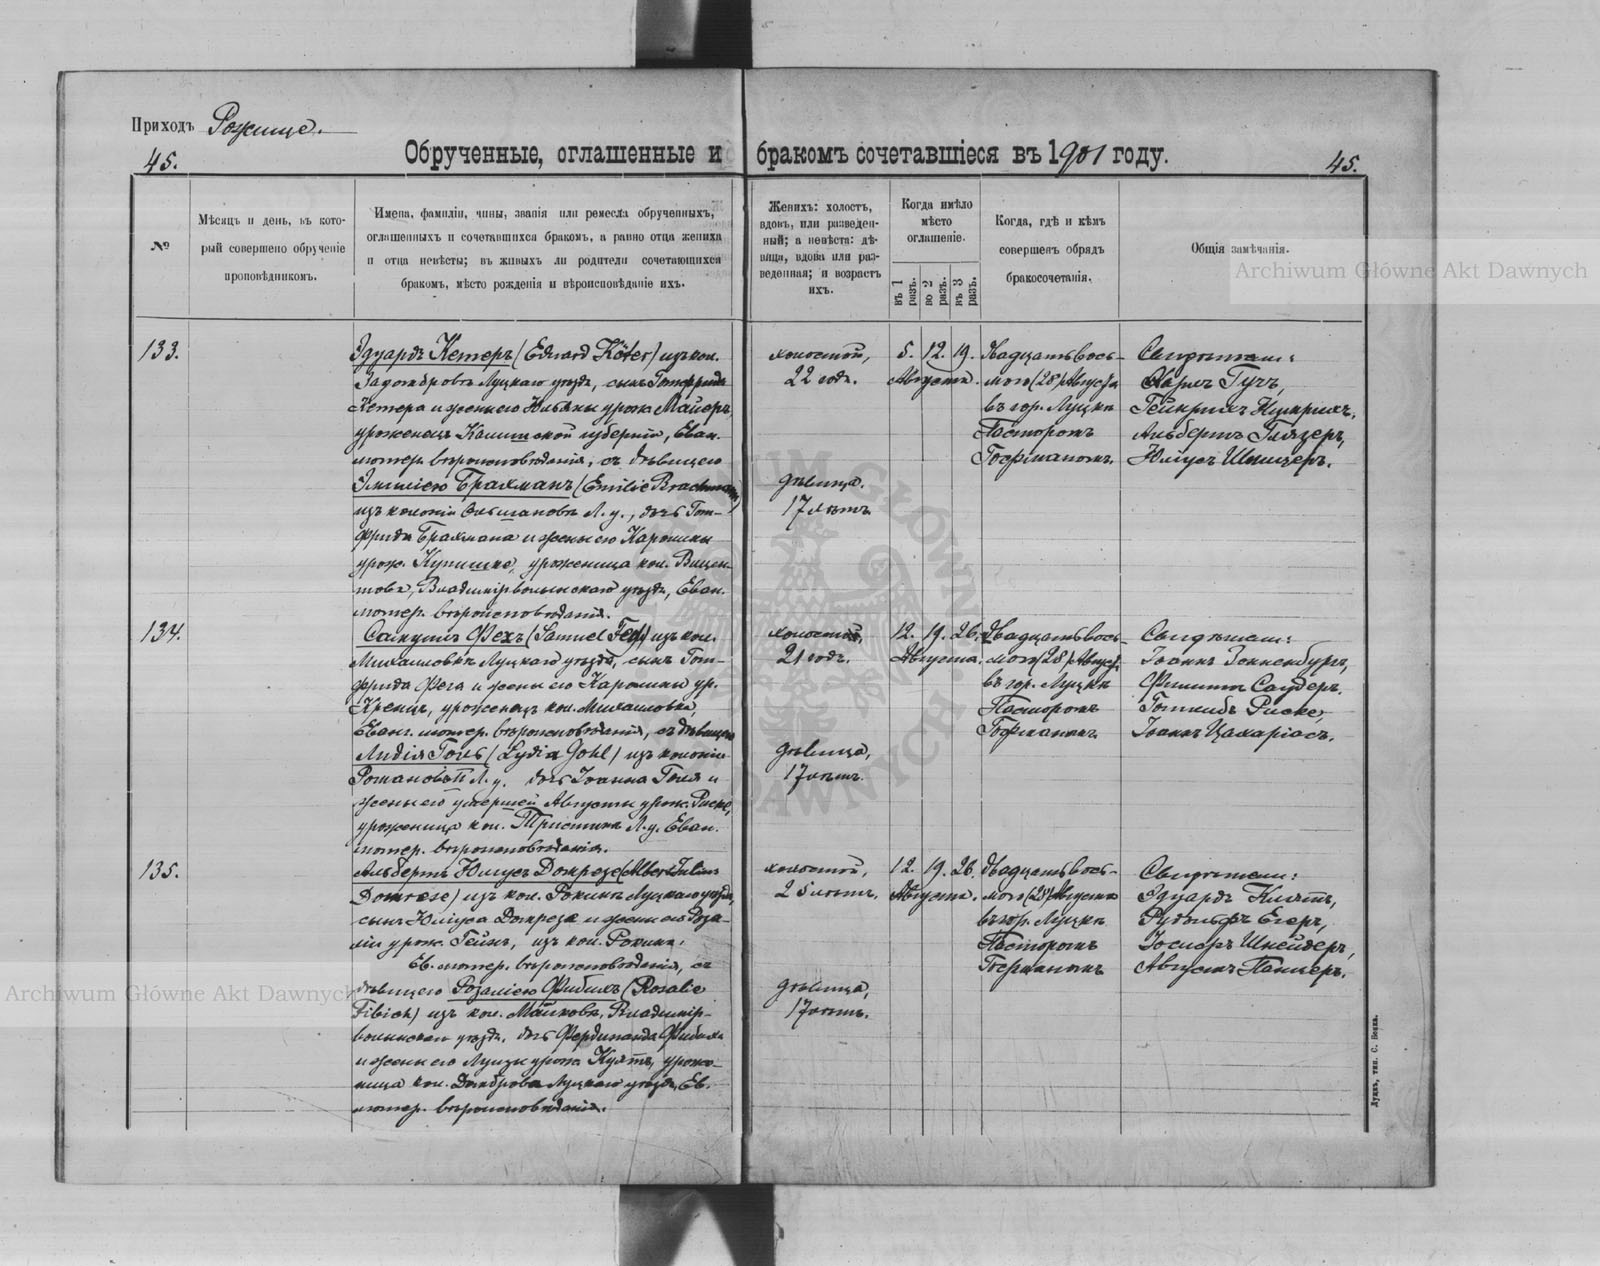 Приходъ Рожище.
45.
Обрученные, оглашенные и бракомъ сочетавшіеся въ 1901 году.
45.
№
Мѣсяцъ и день, въ кото-
рый совершено обрученіе
проповѣдникомъ.
Имена, фамиліи, чины, званія или ремесла обрученныхъ,
оглашенныхъ и сочетавшихся бракомъ, а равно отца жениха
и отца невѣсты; въ живыхъ ли родители сочетающихся
бракомъ, мѣсто рожденія и вѣроисповѣданіе ихъ.
Женихъ: холостъ,
вдовъ, или разведен-
ный; а невѣста: дѣ-
вица, вдова или раз-
веденная; и возрастъ
ихъ.
Когда имѣло
мѣсто
оглашеніе.
въ 1 разъ.
во 2 разъ.
въ 3 разъ.
Когда, гдѣ и кѣмъ
совершенъ обрядъ
бракосочетанія.
Общія замѣчанія.
Archiwum Główne Akt Dawnych
133.
Эдуардъ Кетеръ (Eduard Köter) изъ кол.
Луцкаго уѣзда, сынъ Готфрида
Кетера и жены его Юльяны урож. Майеръ,
уроженецъ Калишской губерніи, Еван.
лютер. вѣроисповѣданія, съ дѣвицею
Эмиліею Брахманъ (Emilie Brachmann)
изъ колоніи Ольгановка Л. у., дочь Гот-
фрида Брахмана и жены его Каролины
урож. уроженица кол. Вицен-
товка, Владимірволынскаго уѣзда, Еван.
лютер. вѣроисповѣданія.
холостой,
22 годъ.
дѣвица.
17 лѣтъ.
5. 12. 19.
Августа.
Двадцать вось-
мого (28) Августа
въ гор. Луцкѣ
Пасторомъ
Гофманомъ.
Свидѣтели:
Карлъ Гучъ,
Гейнрихъ
Альбертъ Глязеръ,
Юліусъ Шницеръ.
134.
Самуилъ Фехъ (Samuel Fech) изъ кол.
Михаловка Луцкаго уѣзда, сынъ Гот-
фрида Феха и жены его Каролины ур.
Кренцъ, уроженецъ кол. Михаловка,
Еванг. лютер. вѣроисповѣданія, съ дѣвицею
Лидія Голь (Lydia Gohl) изъ колоніи
Романовъ II Л. у. дочь Іоанна Голя и
жены его умершей Августы урож. Риске,
уроженица кол. Тристина Л. у. Еван.
лютер. вѣроисповѣданія.
холостой,
21 годъ.
дѣвица,
17 лѣтъ.
12. 19. 26.
Августа.
Двадцать вось-
мого (28) Августа
въ гор. Луцкѣ
Пасторомъ
Гофманомъ
Свидѣтели:
Іоаннъ Зонненбургъ,
Филиппъ Саудеръ.
Готлибъ Риске,
Іоаннъ Цахаріасъ.
135.
Альбертъ Юліусъ Домрезе (Albert Julius
Domrese) изъ кол. Рокини Луцкаго уѣзда,
сынъ Юліуса Домрезе и жены его Роза-
ліи урож. Гейнъ, изъ кол. Рокини.
Ев. лютер. вѣроисповѣданія, съ
дѣвицею Розаліею Фибихъ (Rosalie
Fibich) изъ кол. Майковка, Владимір-
волынскаго уѣзда, дочь Фердинанда Фибиха
и жены его Луизы урож. Куятъ, уроже-
ница кол. Домброва Луцкаго уѣзда, Ев.
лютер. вѣроисповѣданія.
холостой,
25 лѣтъ.
дѣвица,
17 лѣтъ.
12. 19. 26.
Августа.
Двадцать вось-
мого (28) Августа
въ гор. Луцкѣ
Пасторомъ
Гофманомъ
Свидѣтели:
Эдуардъ
Рудольфъ Егеръ,
Іосифъ Шнейдеръ,
Августъ Панцеръ.
Archiwum Główne Akt Dawnych
Луцкъ, тип. С. Бокса.